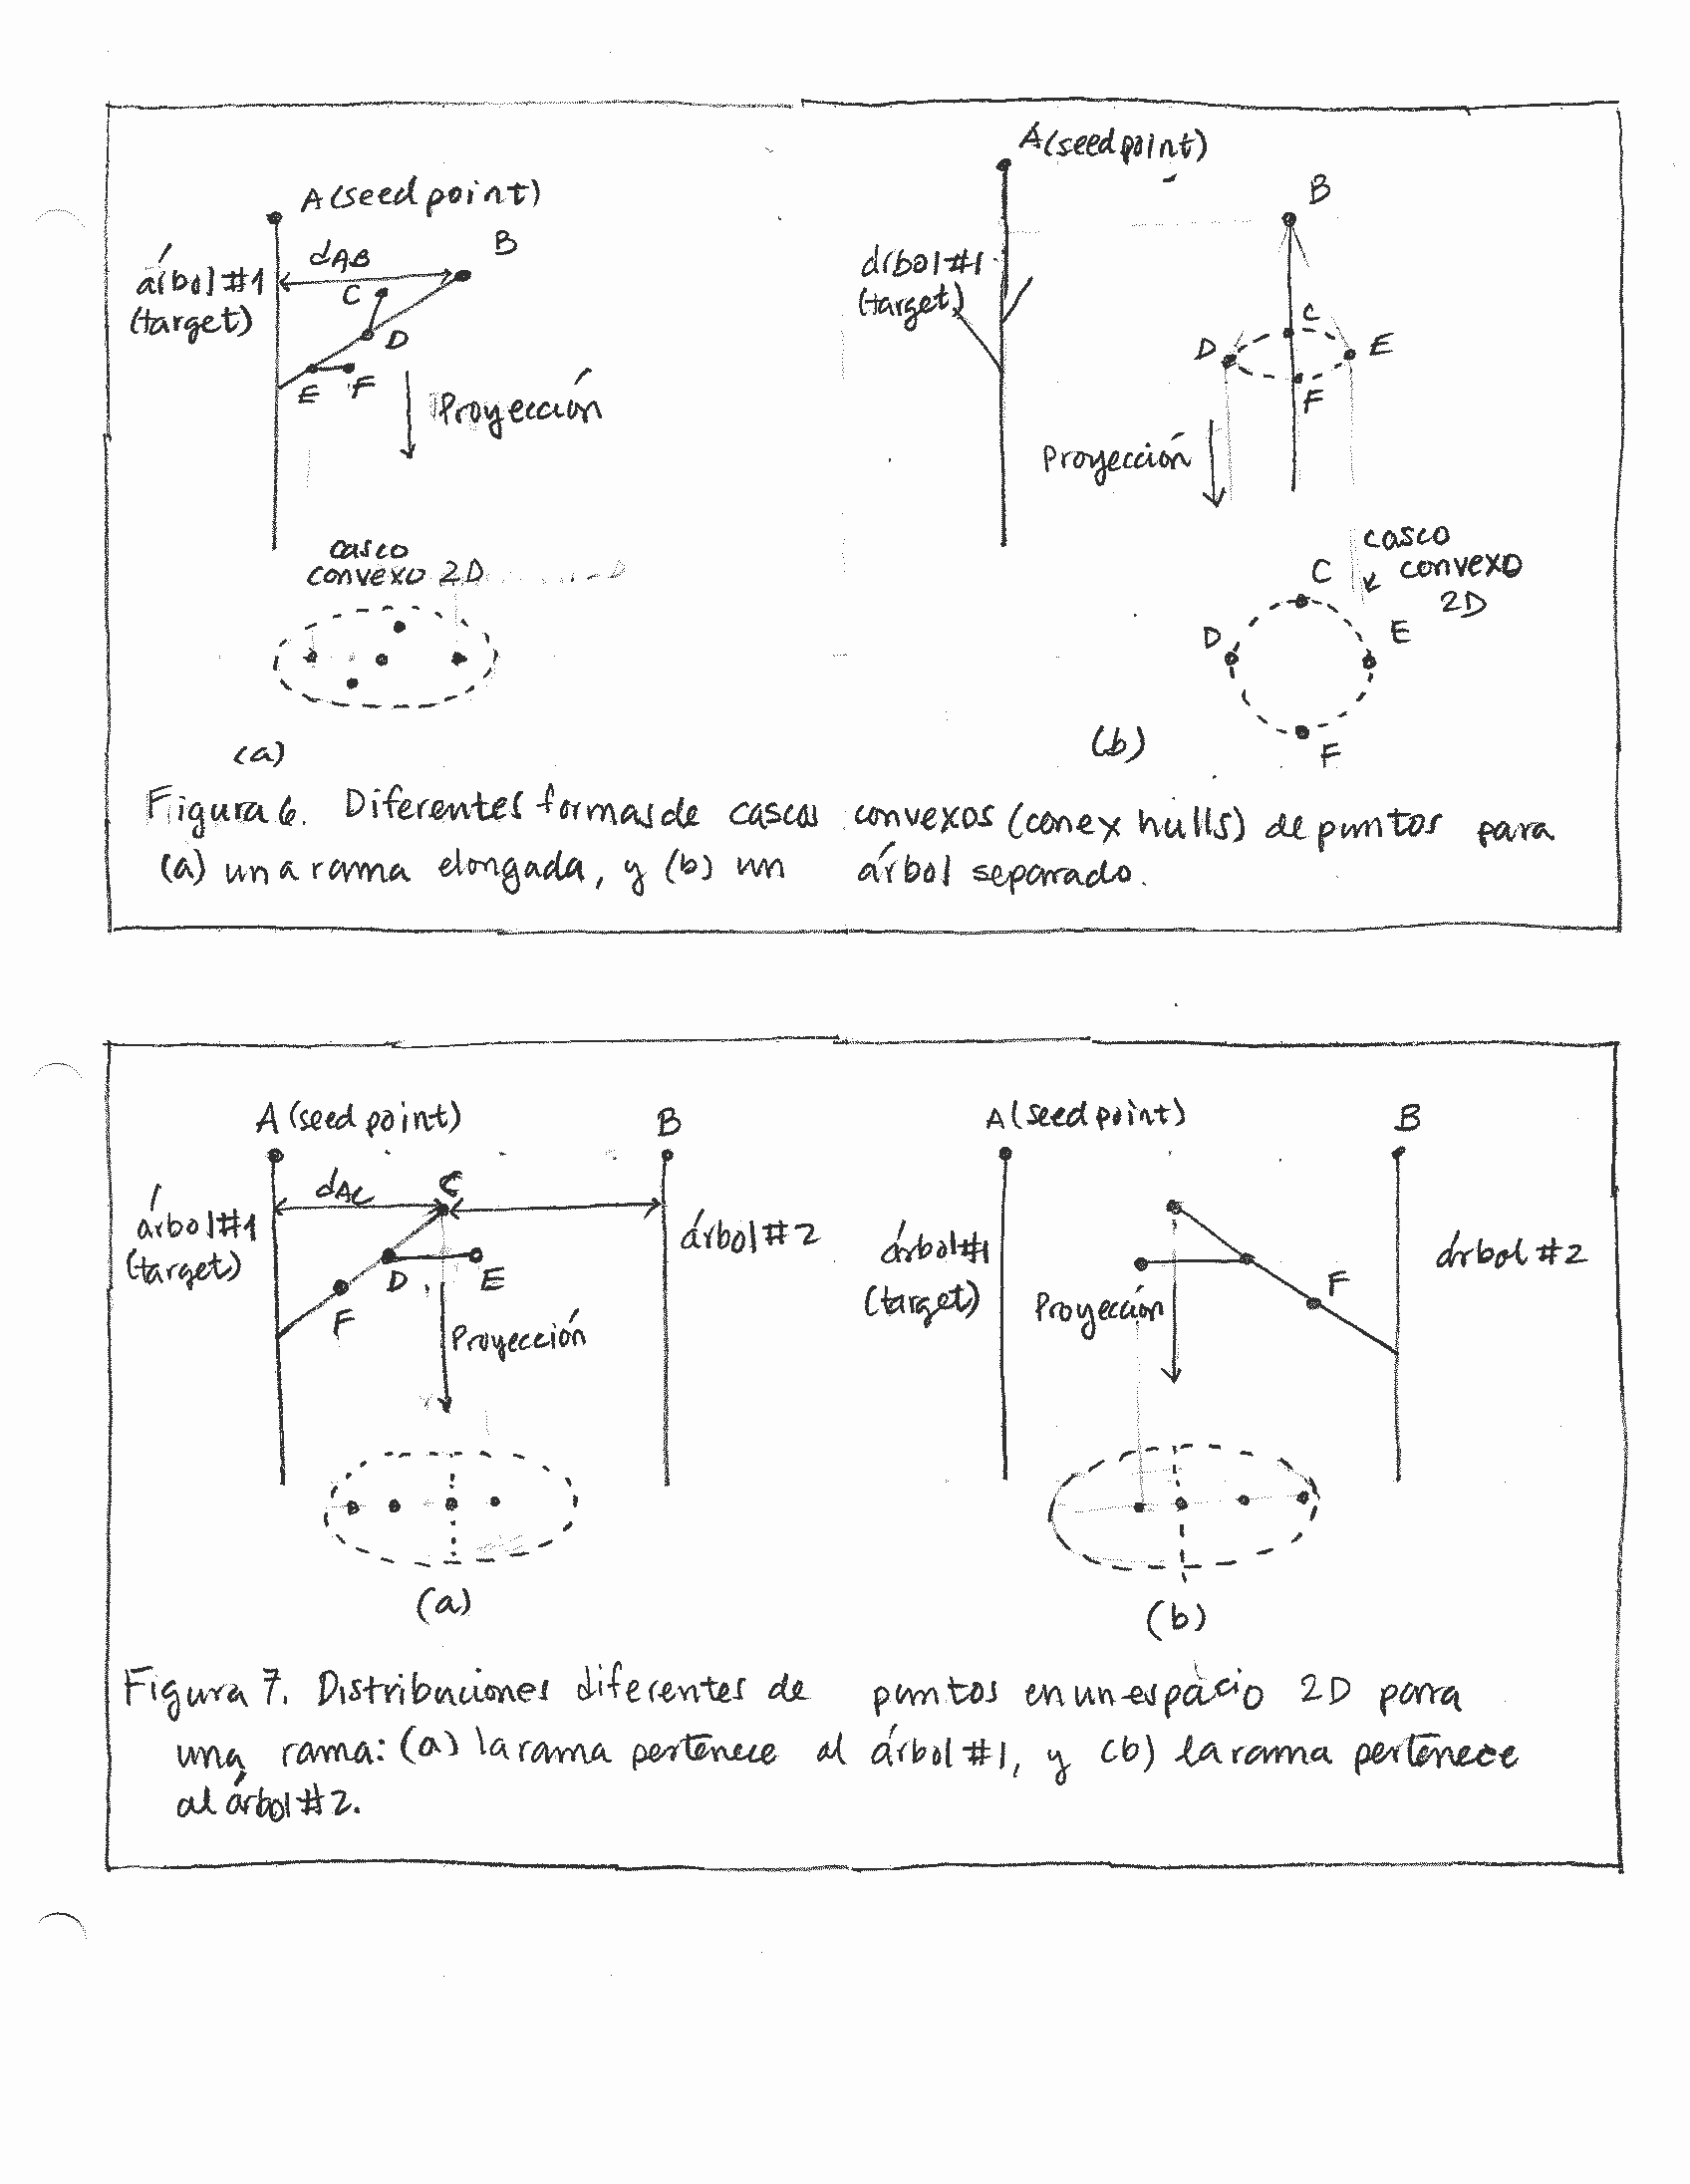 A (seed point)
árbol #1
(target)
dAB
B
C
D
E
F
Proyección
casco
convexo 2D
(a)
A (seed point)
árbol #1
(target)
B
C
D
E
F
Proyección
casco
convexo
2D
C
D
E
F
(b)
Figura 6. Diferentes formas de cascos convexos (conex hulls) de puntos para
(a) una rama elongada, y (b) un árbol separado.
A (seed point)
B
árbol #1
(target)
dAC
C
árbol #2
D
E
F
Proyección
(a)
A (seed point)
B
árbol #1
(target)
árbol #2
F
Proyección
(b)
Figura 7. Distribuciones diferentes de puntos en un espacio 2D para
una rama: (a) la rama pertenece al árbol #1, y (b) la rama pertenece
al árbol #2.